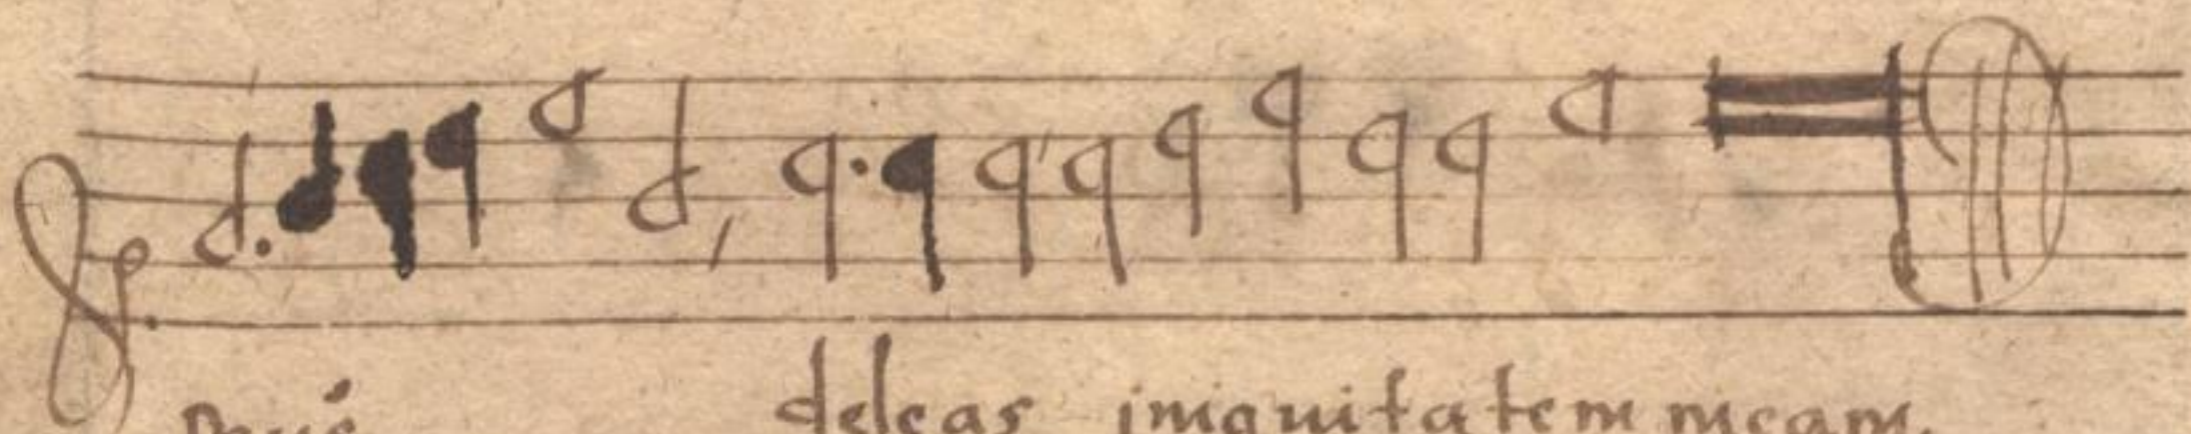 deleas iniquitatem meam.